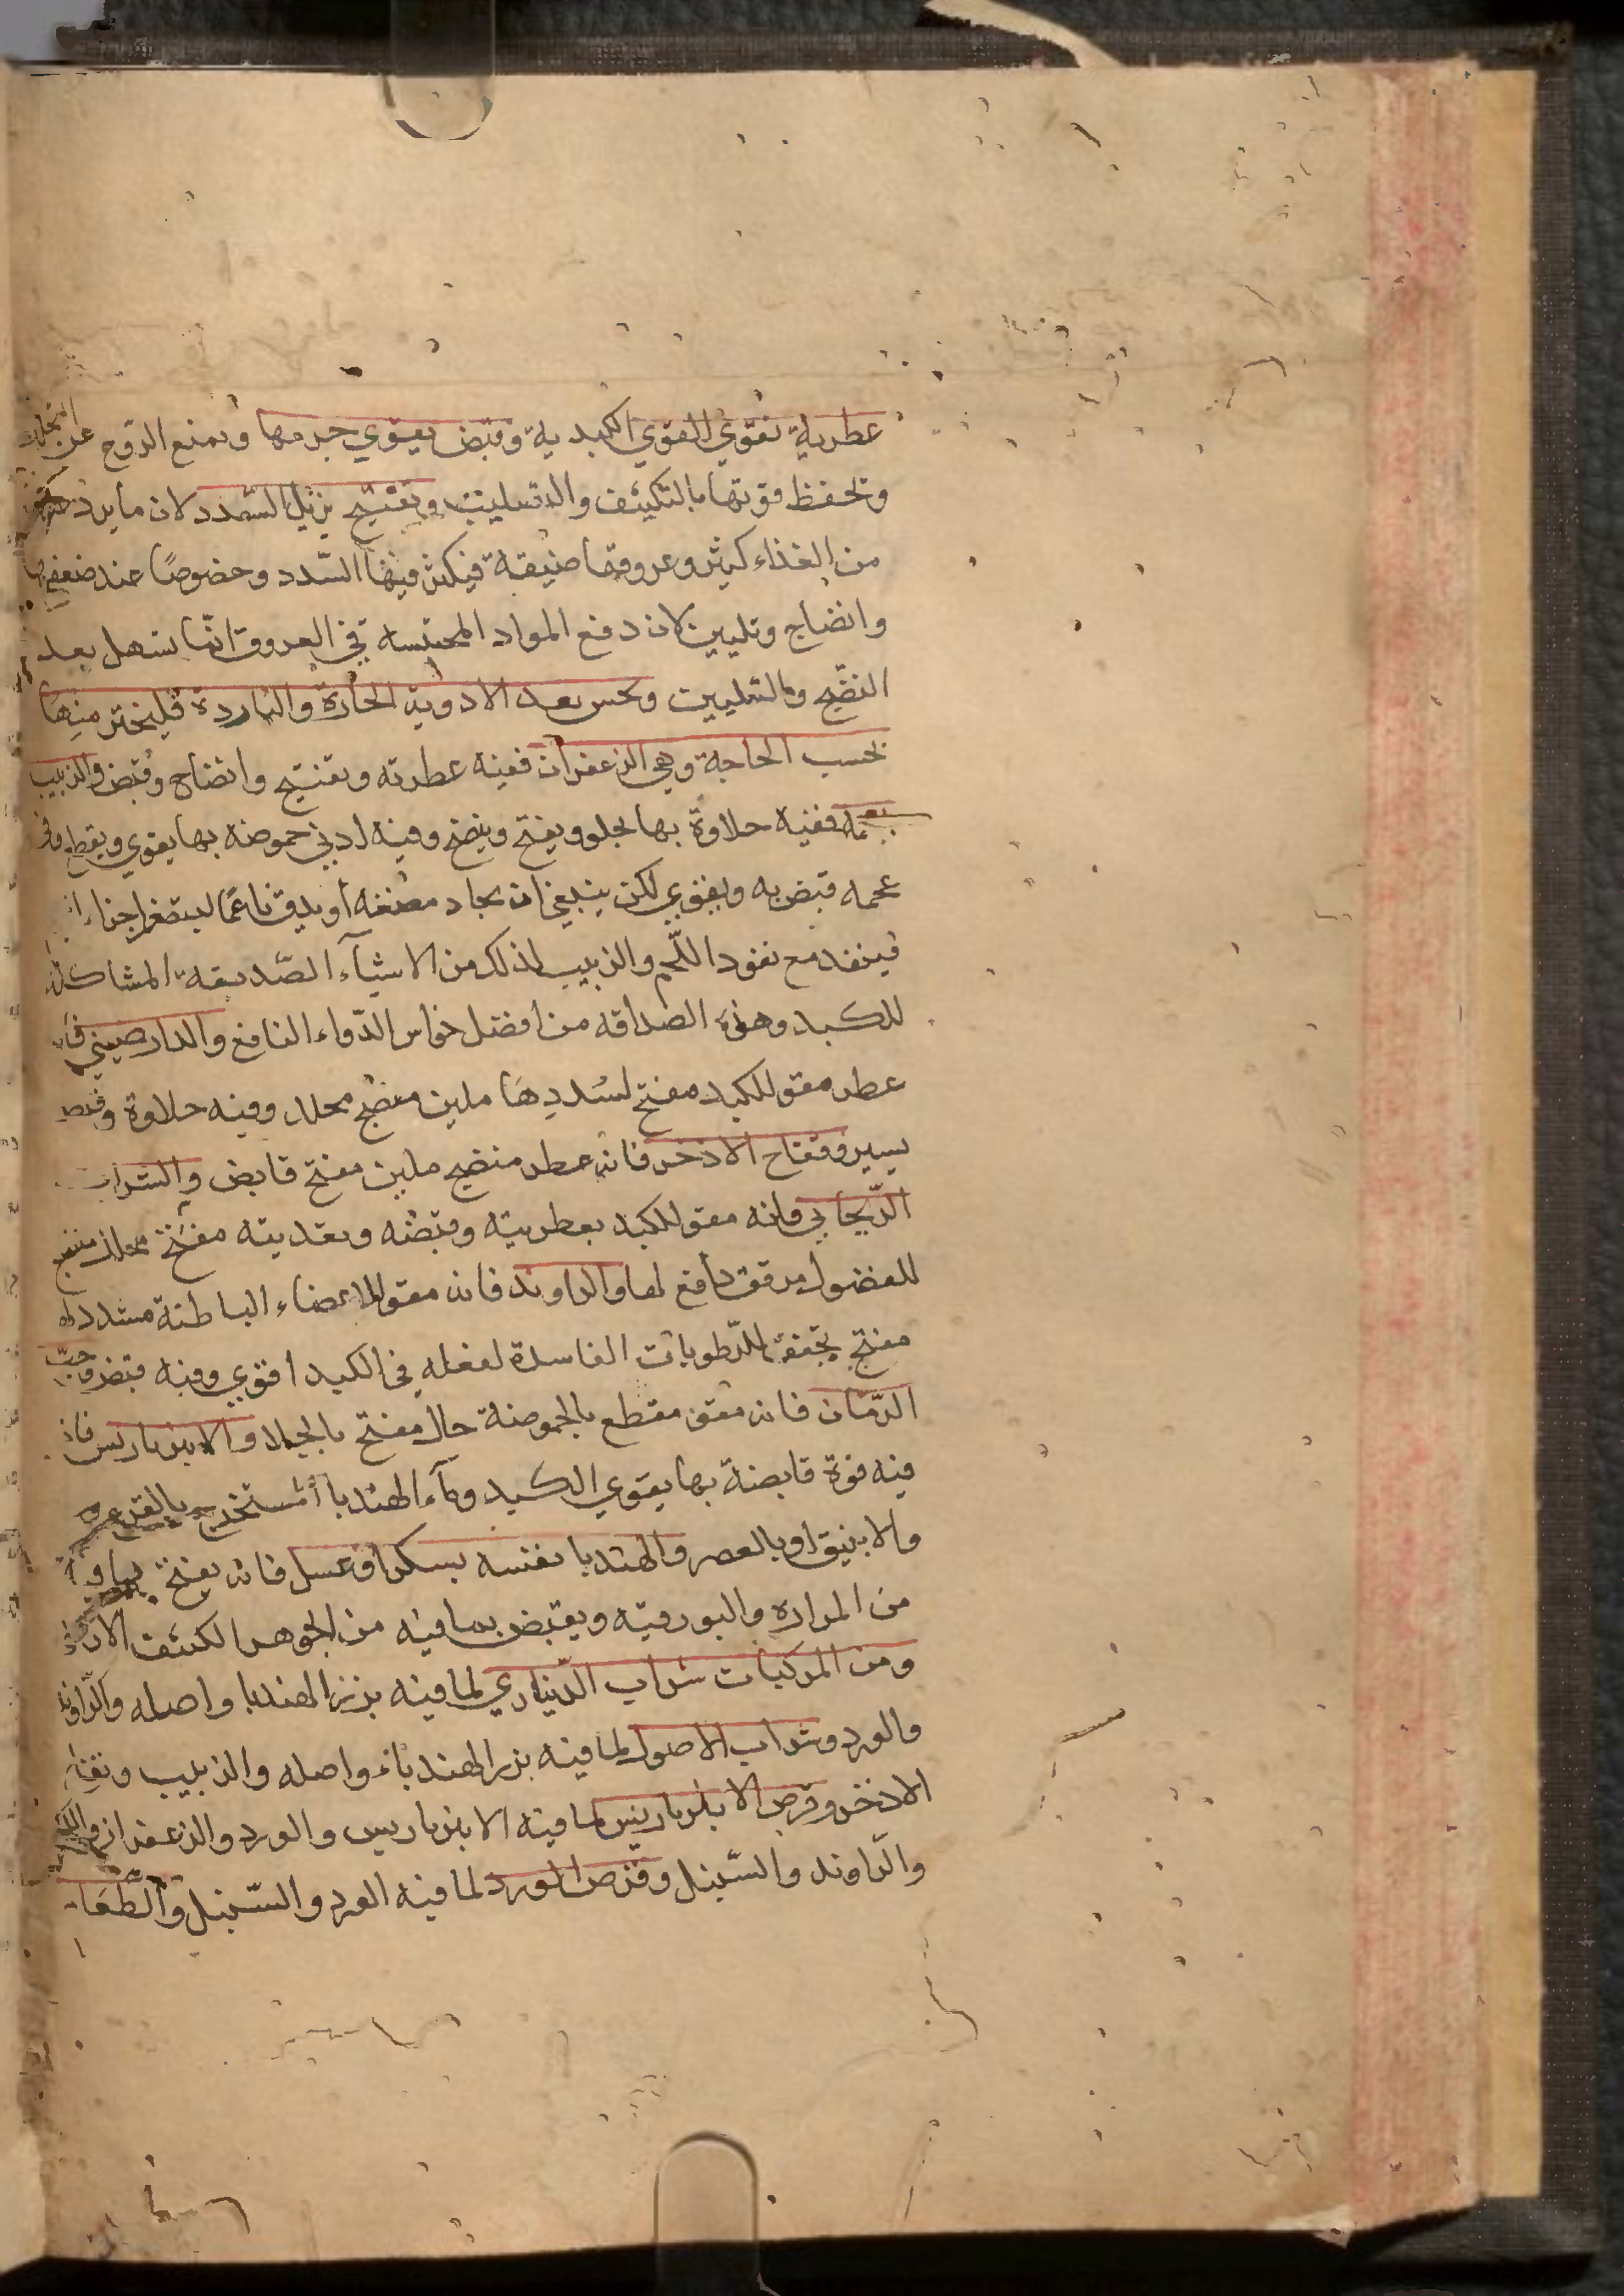 عطرية تقوي القوي الكبدية وقبض يقوي جرمها ويمنع الروح عن التحلل
وتحفظ قوتها بالتكثيف والتصليب وتفتيح يزيل السدد لان ما يرد
من الغذاء كثير وعروقها ضيقة فيكثر فيها السّدد وخصوصًا عند ضعفها
وانضاج وتليين لان دفع المواد المحتبسة في العروق انما يسهل بعد
النضج والتليين وبحسب بعد الادوية الحارة والباردة فليختر منها
بحسب الحاجة وهي الزعفران ففيه عطرية وتفتيح وانضاج وقبض والزبيب
بعجمه ففيه حلاوة بها يجلو ويفتح وينضج وفيه ادني حموضة بها يقوي ويقطع وفي
عجمه قبض به ويقوي لكن ينبغي ان يجاد مضغه أو يدق ناعمًا ليتصغر اجزاء
فينفد مع نفود اللحم والزبيب لذلك من الاشيآء الصّديقة المشاكلة
للكبد وهذه الصداقه من افضل خواص الدّواء النافع والدارصيني
عطر مقو للكبد مفتح لسُددِهَا ملين منضج محلل وفيه حلاوة وقبض
يسير وفقاح الاذخر فانه عطر منضج ملين مفتح قابض والشراب
الرّيحاني فانه مقو للكبد بعطريته وقبضه وبغديته مفتح محلل منضج
للفضول مرقق دافع لها والراوند فانه مقو للاعضاء الباطنة مشدد لها
مفتح مجفف للرّطوبات الفاسدة لفعله في الكبد اقوي وفيه قبض وحبّ
الرّمان فانه مقو مقطع بالحموضة حال مفتح بالجلاء والامبرباريس فان
فيه قوة قابضة بها يقوي الكبد ومآء الهندبا المستخرج بالقرعه
والانبيق او بالعصر والهندبا نفسه بسكر او عسل فانه يفتح بما فيه
من المراره والبورقيه ويقبض بما فيه من الجوهر الكثيف الارضي
ومن المركبات شراب الدّيناري لما فيه بزر الهندبا واصله والرّاوند
والورد وشراب الاصول لما فيه بزر الهندباء واصله والزبيب وفقاح
الاذخر وقرص الامبرباريس لما فيه الامبرباريس والورد والزعفران واللك
والرّاوند والسّنبل وقرص الورد لما فيه الورد والسّنبل والطّعام